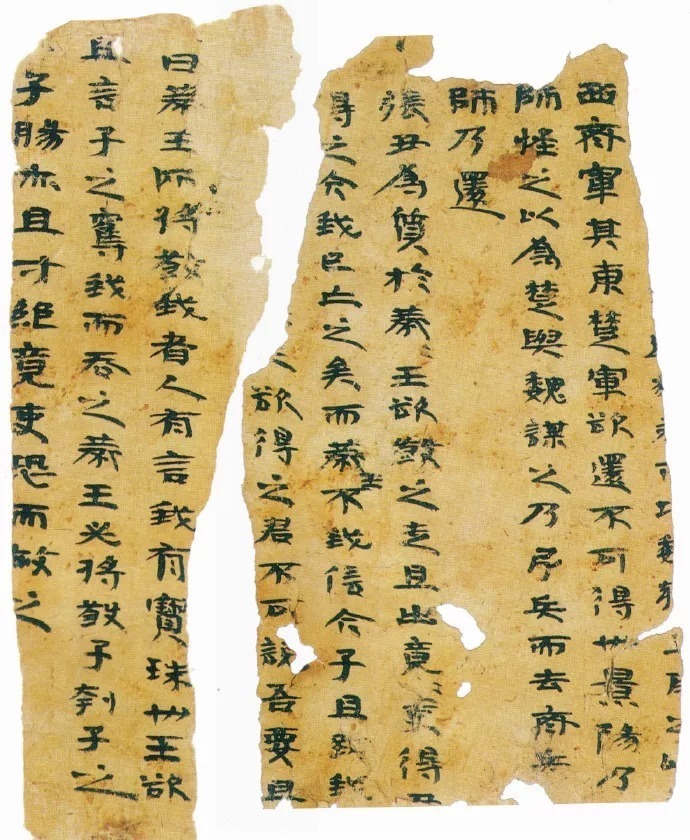 西齊軍其東楚軍欲還不可得也景陽乃
師怪之以為楚與魏謀之乃引兵而去齊兵
師乃還
張丑為質於燕〻王欲殺之走且出竟〻吏得丑
得之今我已亡之矣而燕王不我信今子且致我
欲得之君不可說吾要且
曰燕王所將殺我者人有言我有寶珠也王欲
且言子之奪我而吞之燕王必將殺子刳子之
子腸亦且寸絕竟吏恐而赦之